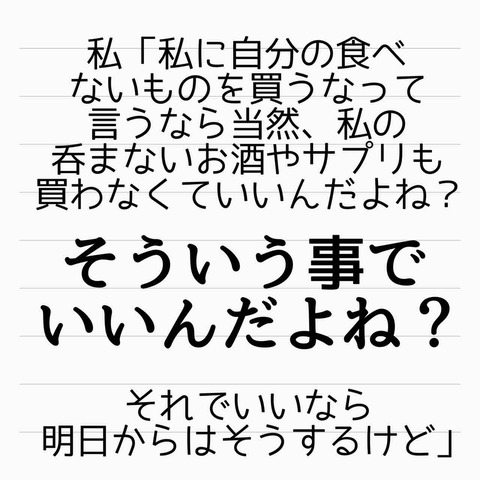 私「私に自分の食べ
ないものを買うなって
言うなら当然、私の
呑まないお酒やサプリも
買わなくていいんだよね？
そういう事で
いいんだよね？
それでいいなら
明日からはそうするけど」